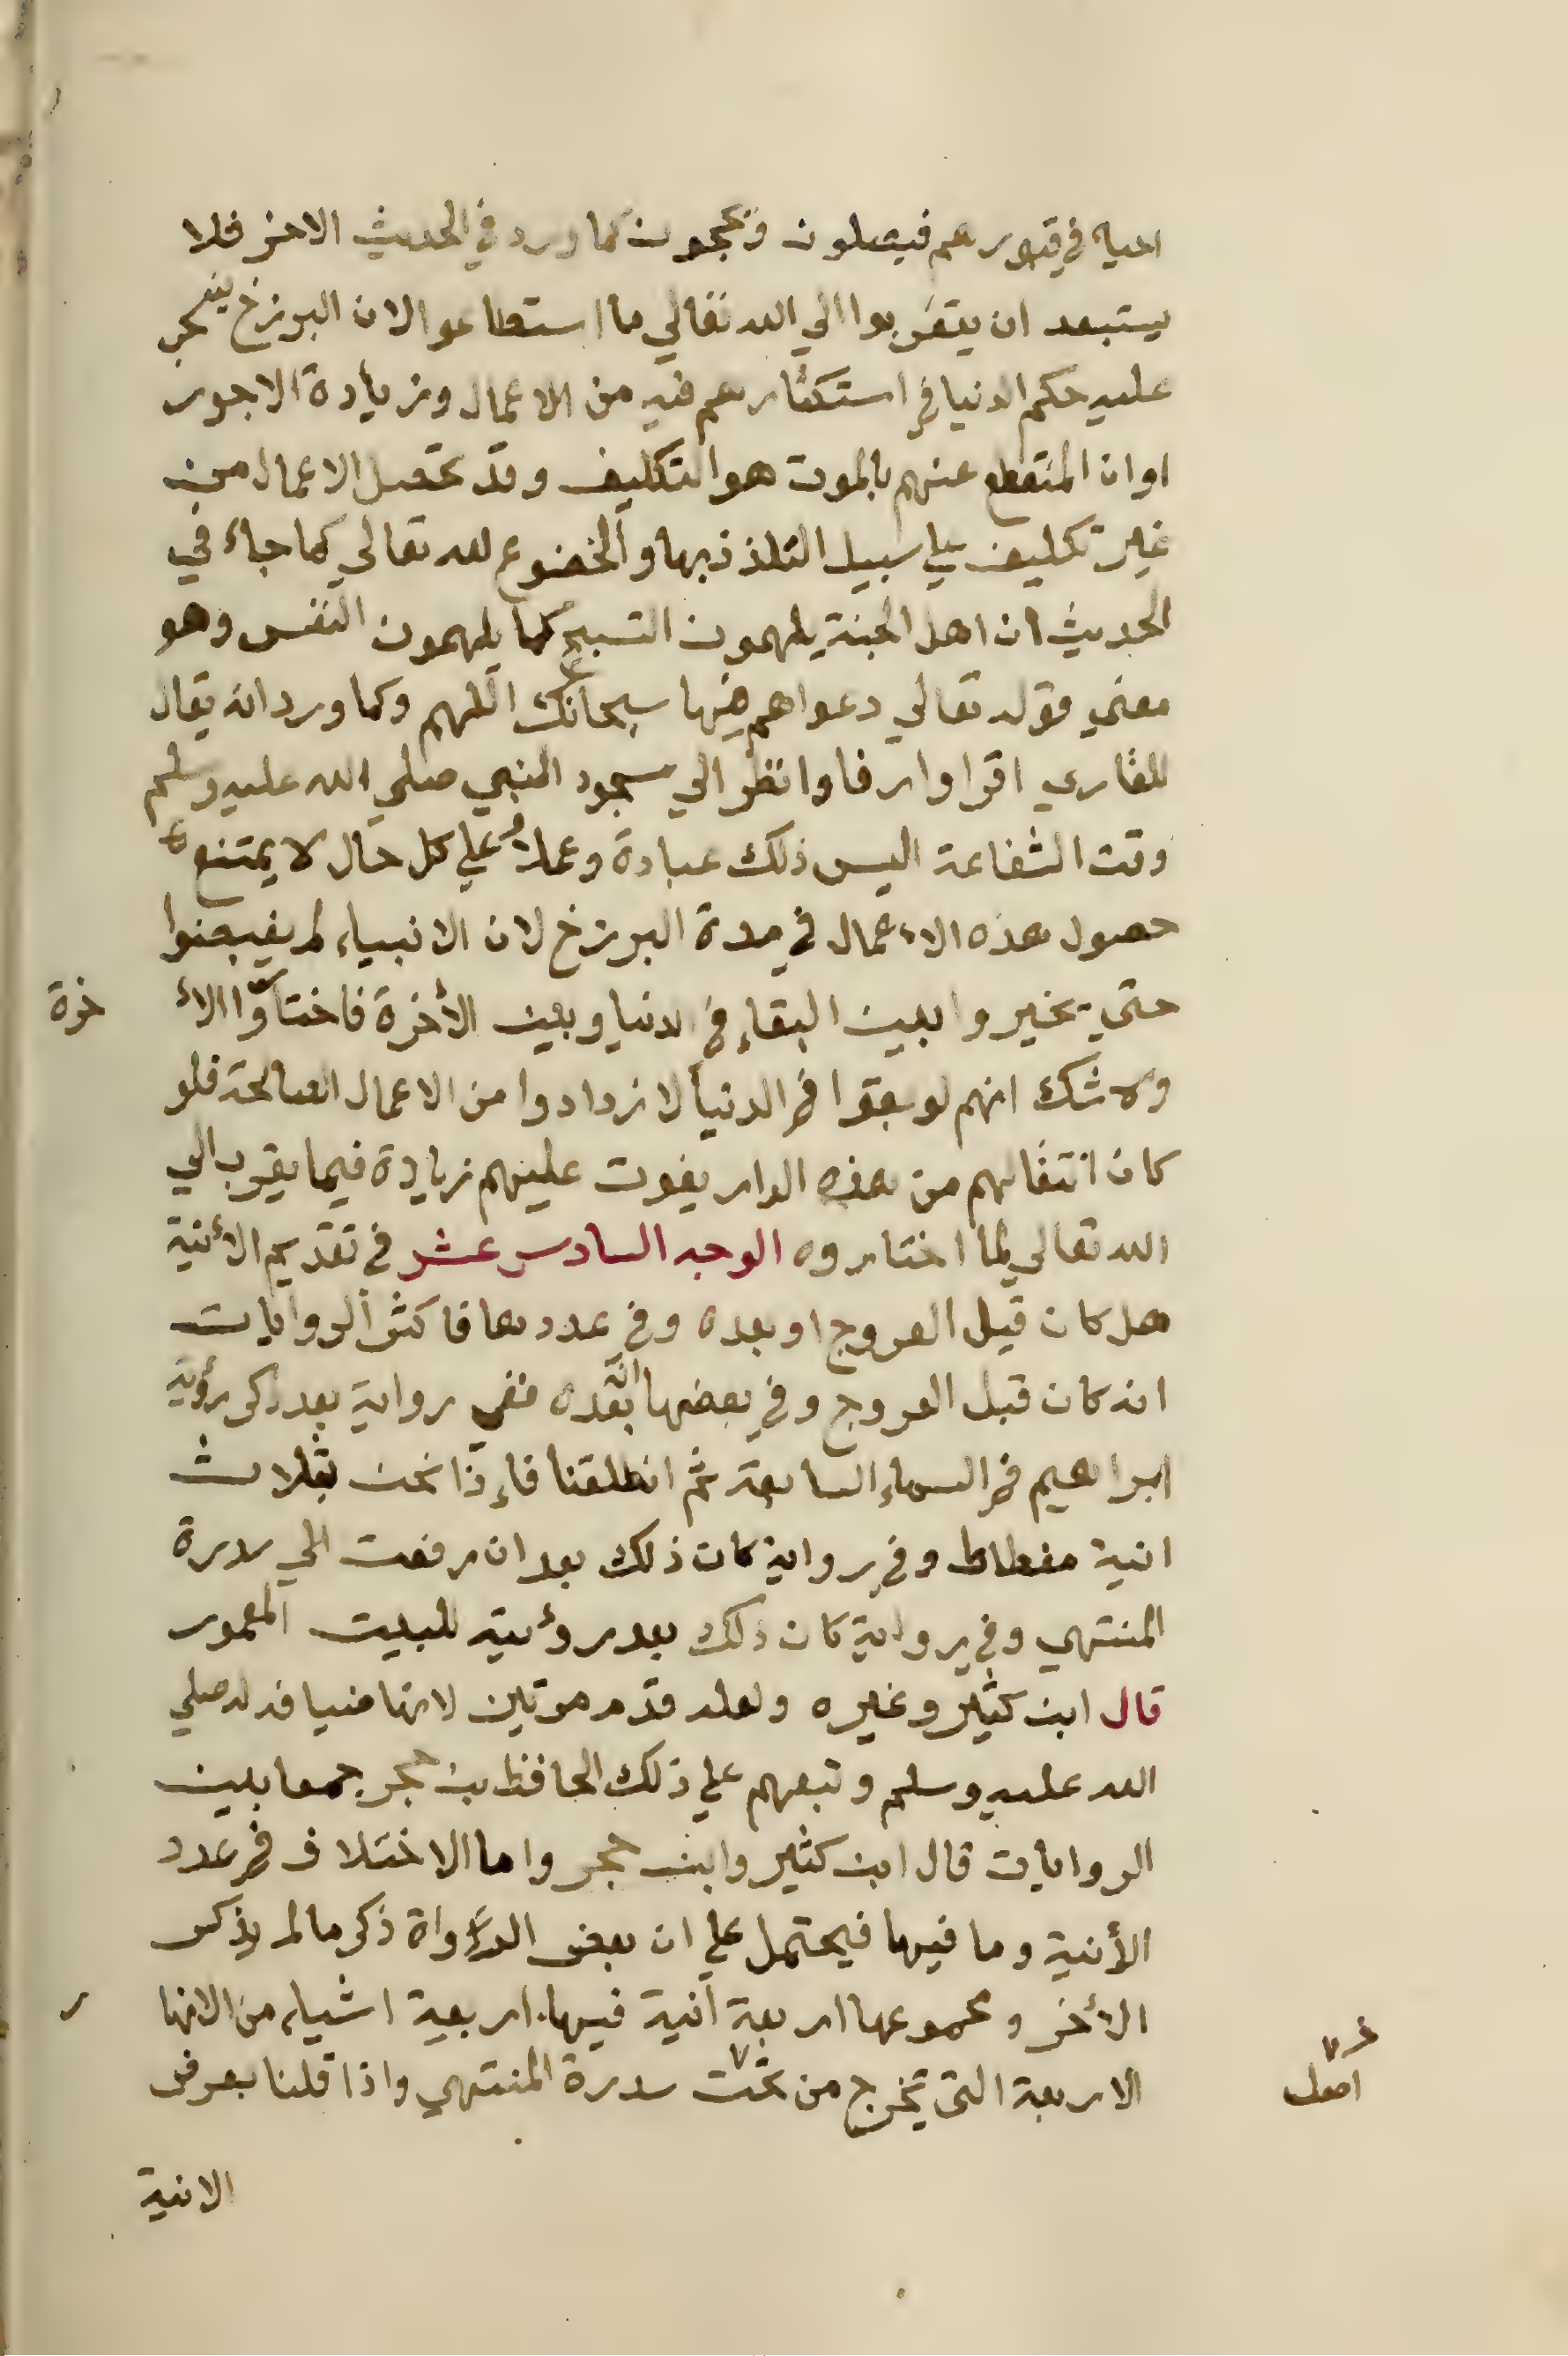 احياء في قبورهم فيصلون ويحجون كما ورد في الحديث الاخر فلا
يستبعد ان يتقربوا الي الله تعالي ما استطاعوا لان البرزخ ينجر
عليه حكم الدنيا في استكثارهم فيه من الاعمال وزيادة الاجور
او ان المنقطع عنهم بالموت هو التكليف وقد تحصل الاعمال من
غير تكليف علي سبيل التلذذ بها والخضوع لله تعالي كما جاء في
الحديث ان اهل الجنة يلهمون التسبيح كما يلهمون النفس وهو
معني قوله تعالي دعواهم فيها سبحانك اللهم وكما ورد انه يقال
للقاري اقرا وارقا وانظر الي سجود النبي صلي الله عليه وسلم
وقت الشفاعة اليس ذلك عبادة وعملا وعلي كل حال لا يمتنع
حصول هذه الاعمال في مدة البرزخ لان الانبياء لم يقبضوا
حتي يخيروا بين البقاء في الدنيا وبين الأخرة فاختاروا الأ خرة
ولا شك انهم لو بقوا في الدنيا لازدادوا من الاعمال الصالحة فلو
كان انتقالهم من هذه الدار يفوت عليهم زيادة فيما يقرب الي
الله تعالي لما اختاروه الوجه السادس عشر في تقديم الأنية
هل كان قبل العروج او بعده وفي عددها فاكثر الروايات
انه كان قبل العروج وفي بعضها انه بعده ففي رواية بعد ذكر رؤية
ابراهيم في السماء السابعة ثم انطلقنا فاءذا نحن بثلاث
انية مغطاط وفي رواية كان ذلك بعد ان رفعت الي سدرة
المنتهي وفي رواية كان ذلك بعد رؤيته للبيت المعمور
قال ابن كثير وغيره ولعله قدم مرتين لانها ضيافة له صلي
الله عليه وسلم وتبعهم علي ذلك الحافظ بن حجر جمعا بين
الروايات قال ابن كثير وابن حجر واما الاختلاف في عدد
الأنية وما فيها فيحتمل علي ان بعض الرواة ذكر ما لم يذكر
الأخر ومجموعها اربعة انية فيها اربعية اشياء من الانها ر
الاربعة التي تخرج من تحت سدرة المنتهي واذا قلنا بعرض
اصل
الانية